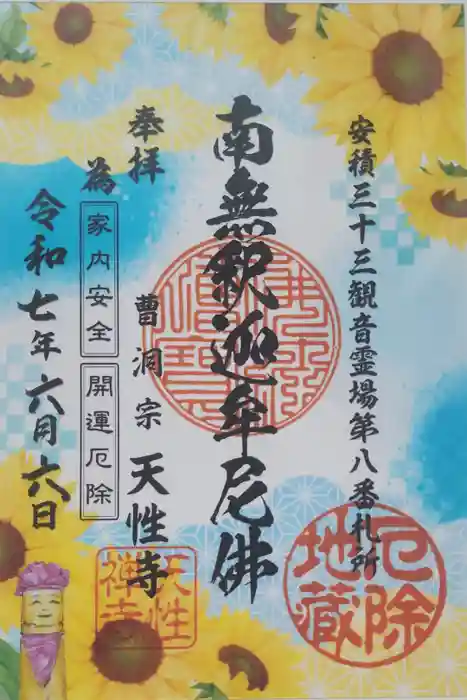 安積三十三観音霊場第八番札所
南無釈迦牟尼佛
奉拝
曹洞宗 天性寺
為 家内安全 開運厄除
令和七年六月六日
厄除
地蔵
天性
禅寺